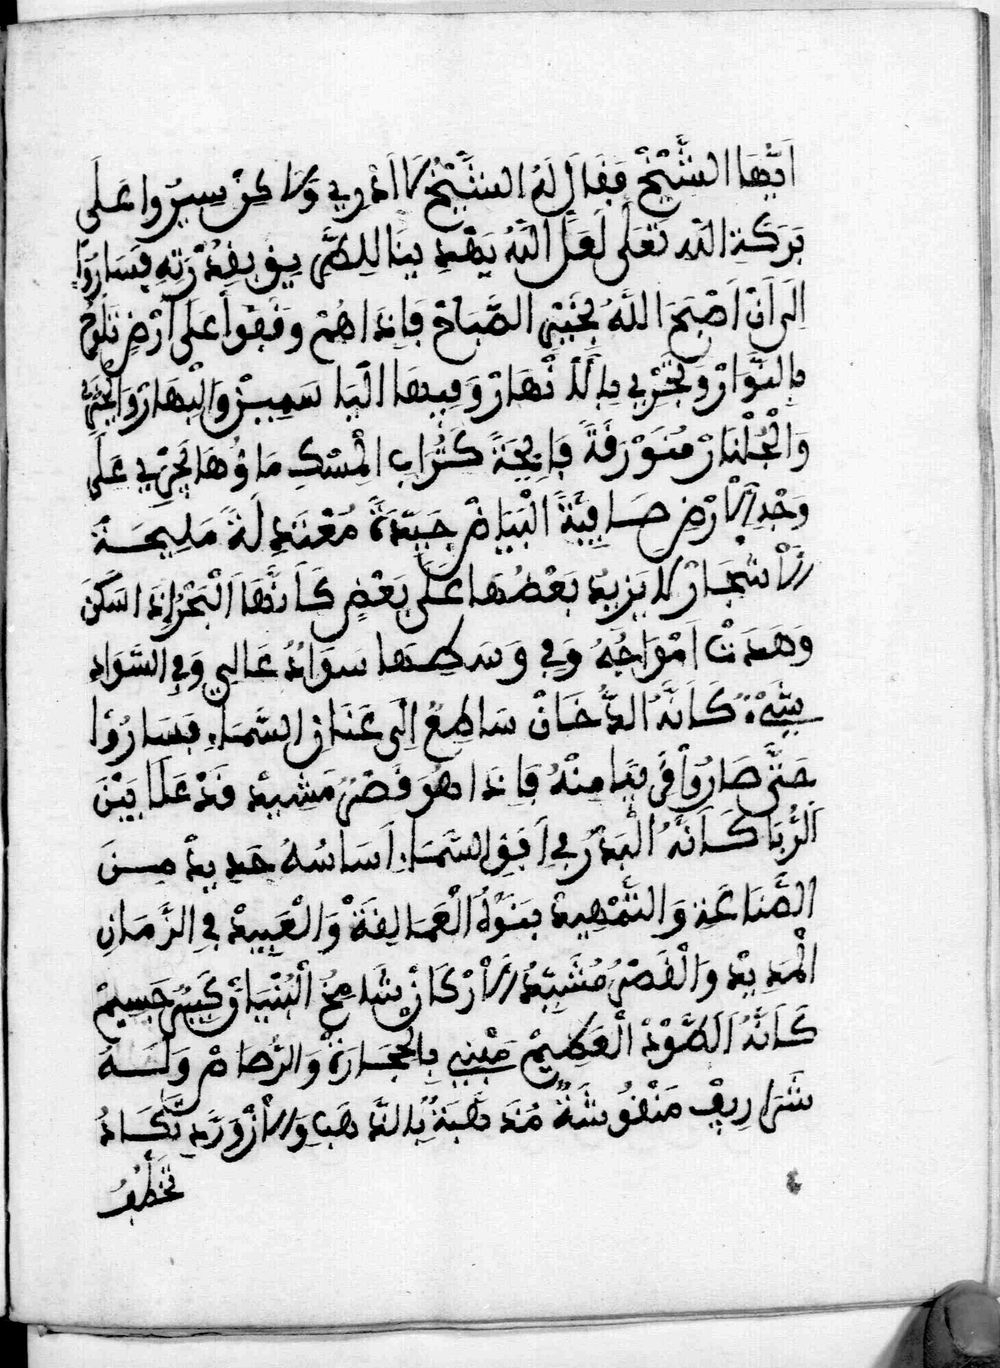 اَيُّهَا الشَّيْخُ فَقَالَ لَهُ الشَّيْخُ لَا اَدْرِي وَلَاكِنْ سِيرُوا عَلَى
بَرَكَةِ اللَّهِ تَعَلَى لَعَلَّ اللَّهُ يَهْدِ بِنَا لِلطَّرِيقِ بِقُدْرَتِهِ فَسَارُوا
اِلَى اَنْ اَصْبَحَ اللَّهُ بِخَيْرِ الصَّبَاحْ فَاِذَا هُمْ وَقَفُوا عَلَى اَرْضٍ تَلُوحُ
بِالنَّوَارْ وَتَجْرِي بِالْاَنْهَارْ وَفِيهَا الْيَاسَمِينْ وَالْبَهَارْ وَالْخَيْرِي
وَالْجُلْنَارْ مُتَوْرِقَةً فَايِحَةً كَتُرَابِ الْمِسْكِ مَاؤُهَا يَجْرِي عَلَى
وَجْهِ الْاَرْضِ صَافِيَّةً الْبَيَاضْ جَيِّدَةً مُعْتَدِلَةً مَلِيحَةً
الْاَشْجَارْ لا يَزِيدُ بَعْضُهَا عَلَى بَعْضٍ كَاَنَّهَا الْبَحْرُ اِذَا سَكَنَ
وَهَدَتْ اَمْوَاجُهُ وَفِي وَسَطِهَا سَوَادٌ عَالِي وَفِي السَّوَادِ
شَيْءٌ كَاَنَّهُ الدُّخَانْ سَاطِعٌ اِلَى عَنَانِ السَّمَاءِ فَسَارُوا
حَتَّى صَارُوا قَرِيبًا مِنْهُ فَاِذَا هُوَ قَصْرٌ مَشِيدْ قَدْ عَلَا بَيْنَ
الرُّبَا كَاَنَّهُ الْبَدْرُ فِي اَفَقِ السَّمَاءِ اَسَاسُهُ حَدِيدْ مِنَ
الصَّنَاعَةِ وَالتَّمْهِيدْ بَنَوْهُ الْعَمَالِقَةْ وَالْعَبِيدْ فِي الزَّمَانِ
الْمَدِيدْ وَالْقَصْرُ مُشَيَّدُ الْاَرْكَانْ شَامِخُ الْبُنْيَانْ كَبِيرٌ جَسِيمْ
كَاَنَّهُ الطَّوْدُ الْعَظِيمْ مَبْنِي بِالْحِجَارَةْ وَالرُّخَامْ وَلَهُ
شَرَارِيفْ مَنْقُوشَةٌ مُذَهَبَةٌ بِالذَّهَبِ وَالْاَزْوَرَدِ تَكَادُ
تَخْطَفُ